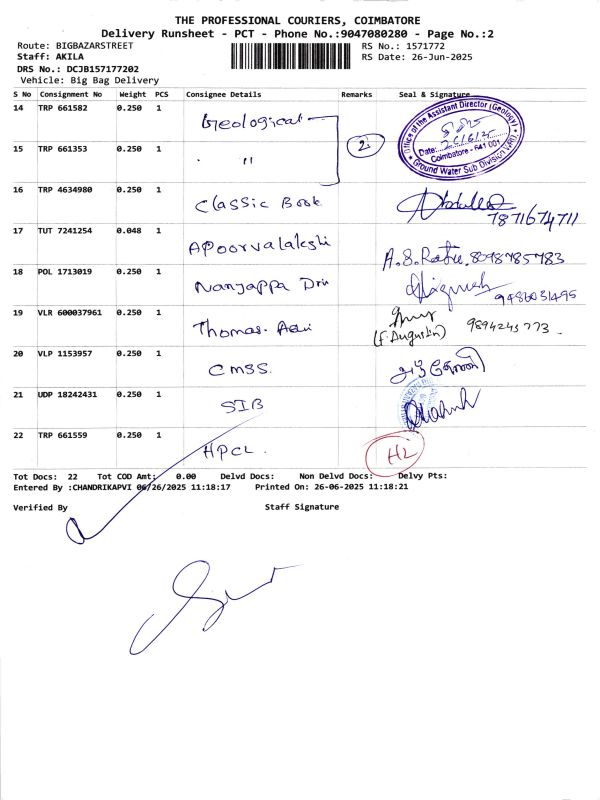 THE PROFESSIONAL COURIERS, COIMBATORE
Delivery Runsheet - PCT - Phone No.:9047080280 - Page No.:2
Route: BIGBAZARSTREET
RS No.: 1571772
Staff: AKILA
RS Date: 26-Jun-2025
DRS No.: DCJB157177202
Vehicle: Big Bag Delivery
S No Consignment No Weight PCS Consignee Details Remarks Seal & Signature
14 TRP 661582 0.250 1 Geological
Office of the Assistant Director (Geology)
Date: 26/6/25
Coimbatore - 641 001
Ground Water Sub Division (WRD)
15 TRP 661353 0.250 1 " 2
16 TRP 4634980 0.250 1 Classic Book
7871674711
17 TUT 7241254 0.048 1 Apoorvalakshi A.S. 8098785783
18 POL 1713019 0.250 1 Nanjappa 9486031495
19 VLR 600037961 0.250 1 Thomas
(F. Augustin) 9894245773
20 VLP 1153957 0.250 1 CMSS
21 UDP 18242431 0.250 1 SIB
22 TRP 661559 0.250 1 HPCL
Tot Docs: 22 Tot COD Amt: 0.00 Delvd Docs: Non Delvd Docs: Delvy Pts:
Entered By :CHANDRIKAPVI 06/26/2025 11:18:17 Printed On: 26-06-2025 11:18:21
Verified By Staff Signature